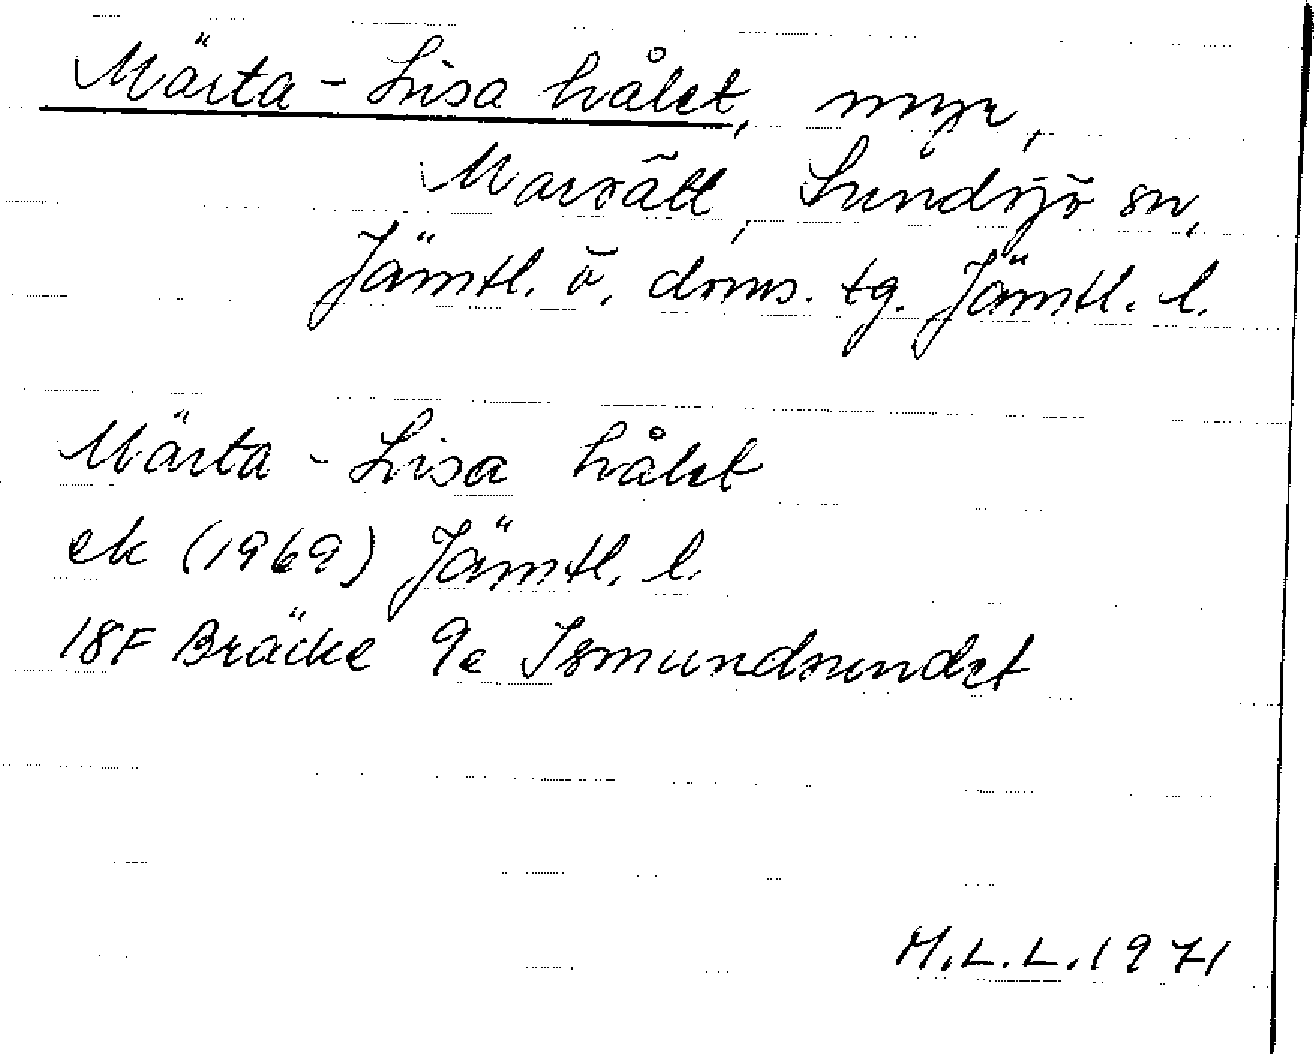 Märta-Lisa hålet, myr,
Marsätt, Sundsjö sn,
Jämtl. ö. doms. tg. Jämtl. l.
Märta-Lisa hålet
ek (1969) Jämtl. l.
18F Bräcke 9e Ismundsundet
M.L.L. 1971